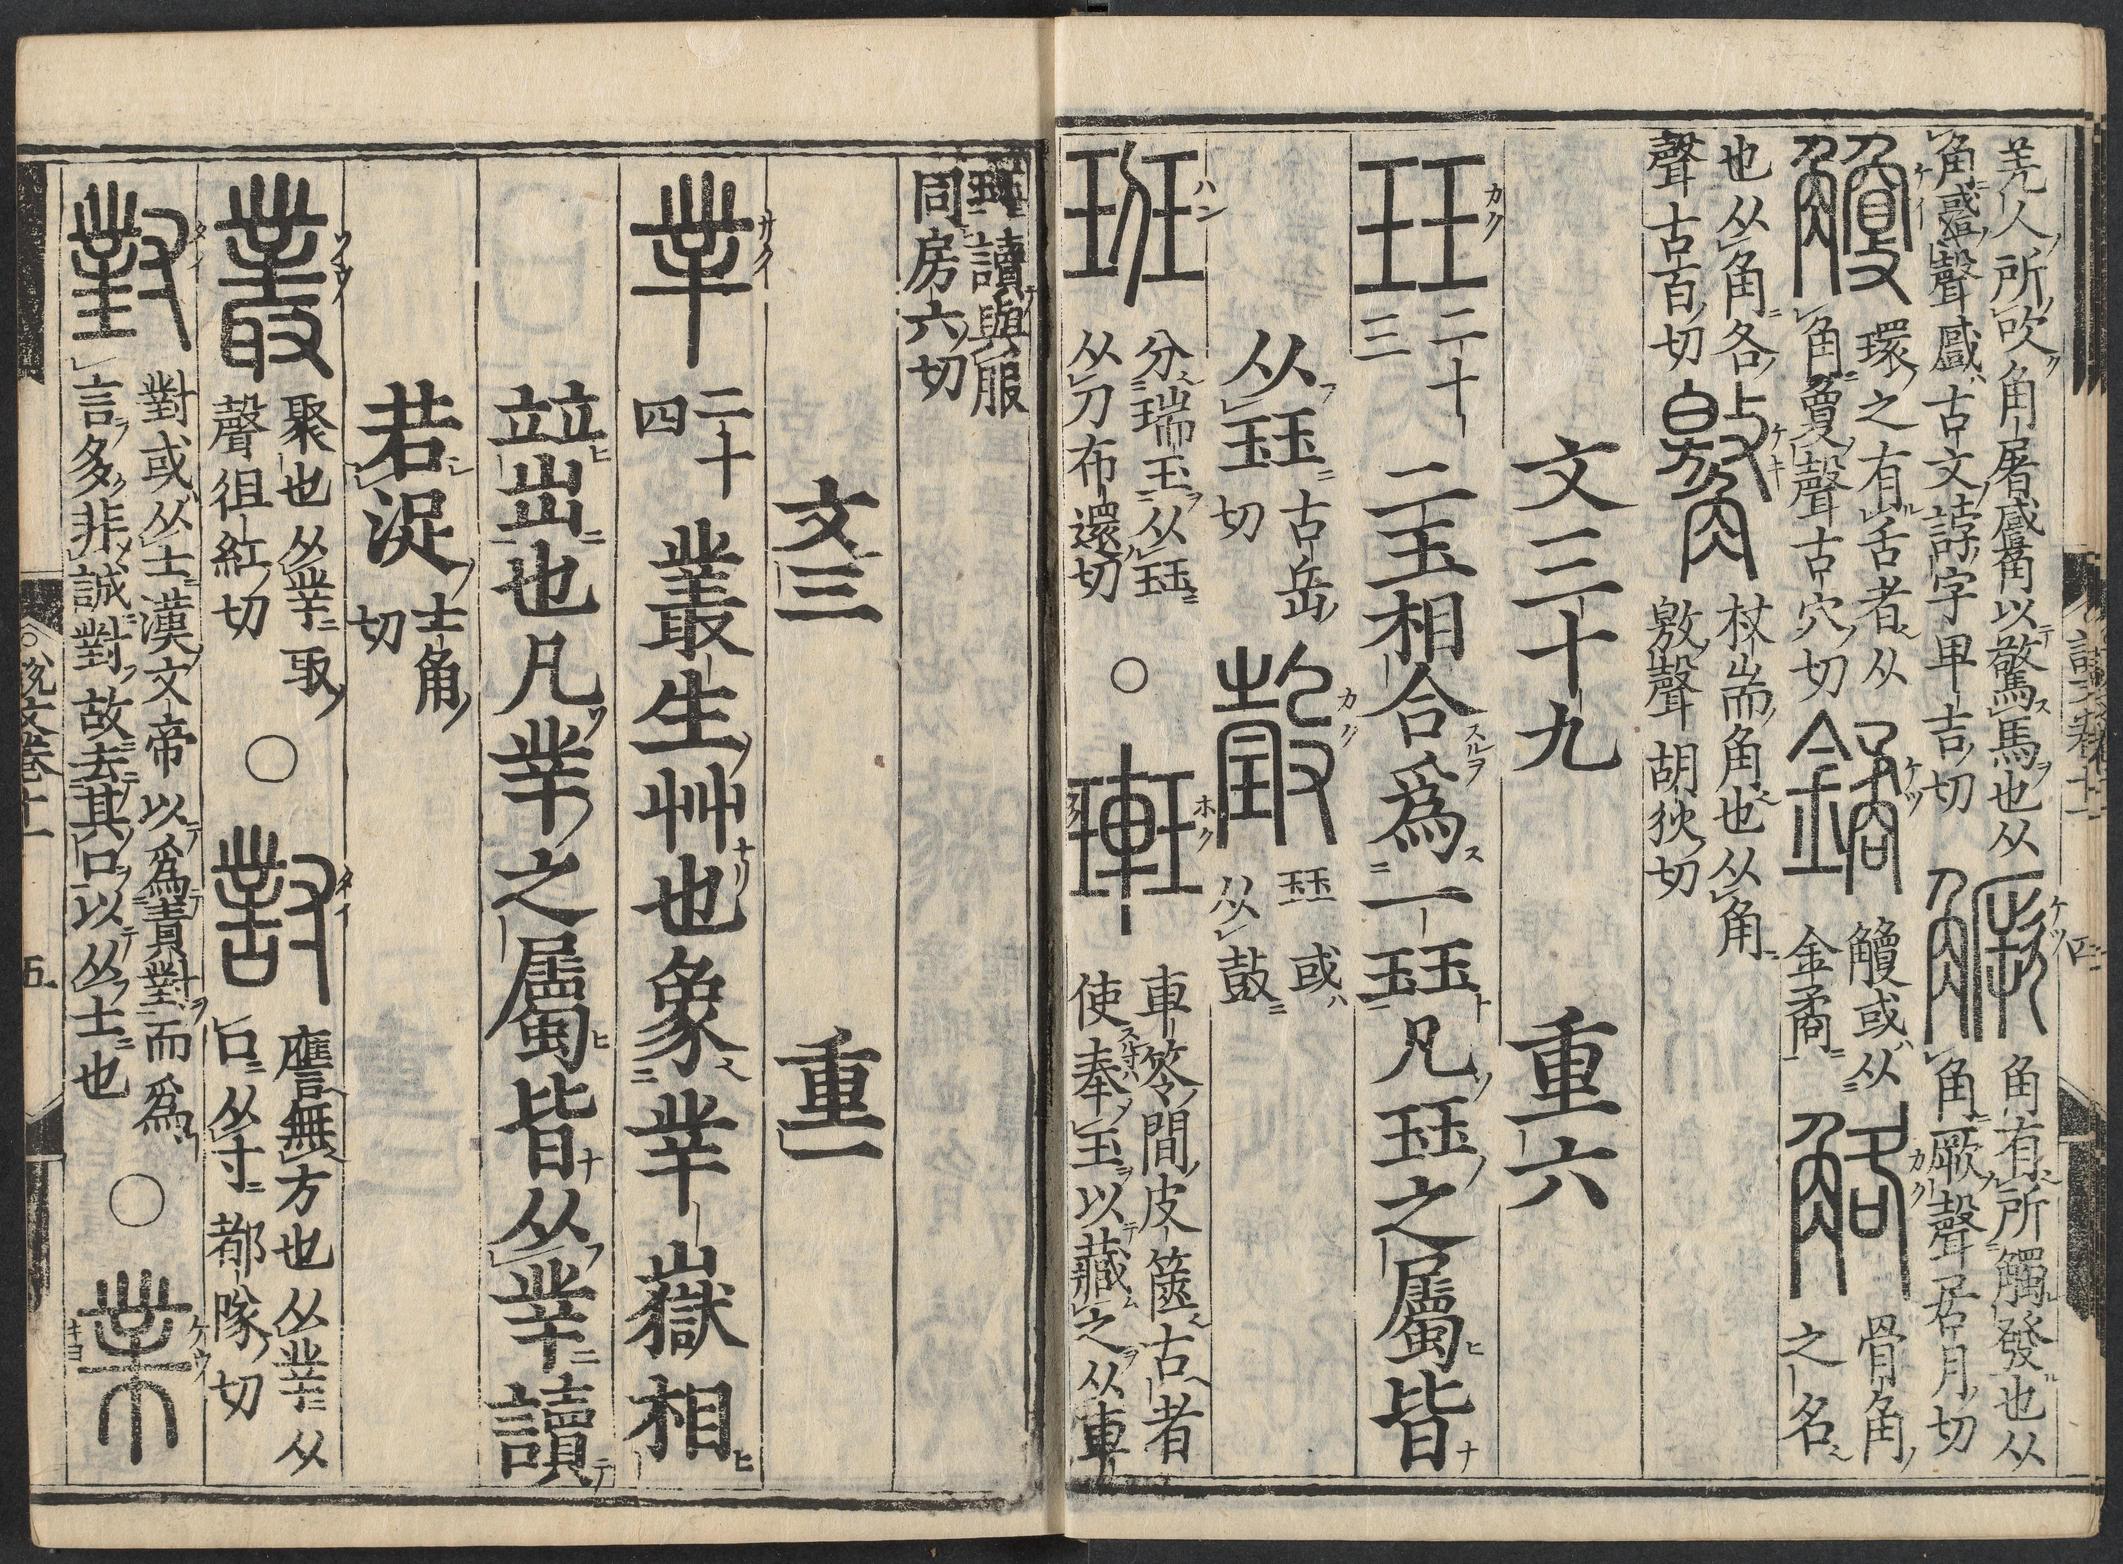 羌人所吹角屠𧤗以驚馬也从
角𧤗聲𧤗古文誖字卑吉切
角有所觸發也从
角厥聲居月切
環之有舌者从
角敻聲古穴切
觼或从
金矞
骨角
之名
也从角各
聲古百切
杖耑角也从角
敫聲胡狄切
文三十九 重六
二十
三
二玉相合爲一珏凡珏之屬皆
从珏
古岳
切
珏或
从㱿
分瑞玉从珏
从刀布還切
○
車笭間皮篋古者
使奉玉以藏之从車
珏讀與服
同房六切
文三 重一
二十
四
叢生艸也象丵嶽相
竝出也凡丵之屬皆从丵讀
若浞
士角
切
聚也从丵取
聲徂紅切
○
譍無方也从丵从
口从寸都隊切
對或从士漢文帝以爲責對而爲
言多非誠對故去其口以从士也
○
說文卷十一
五